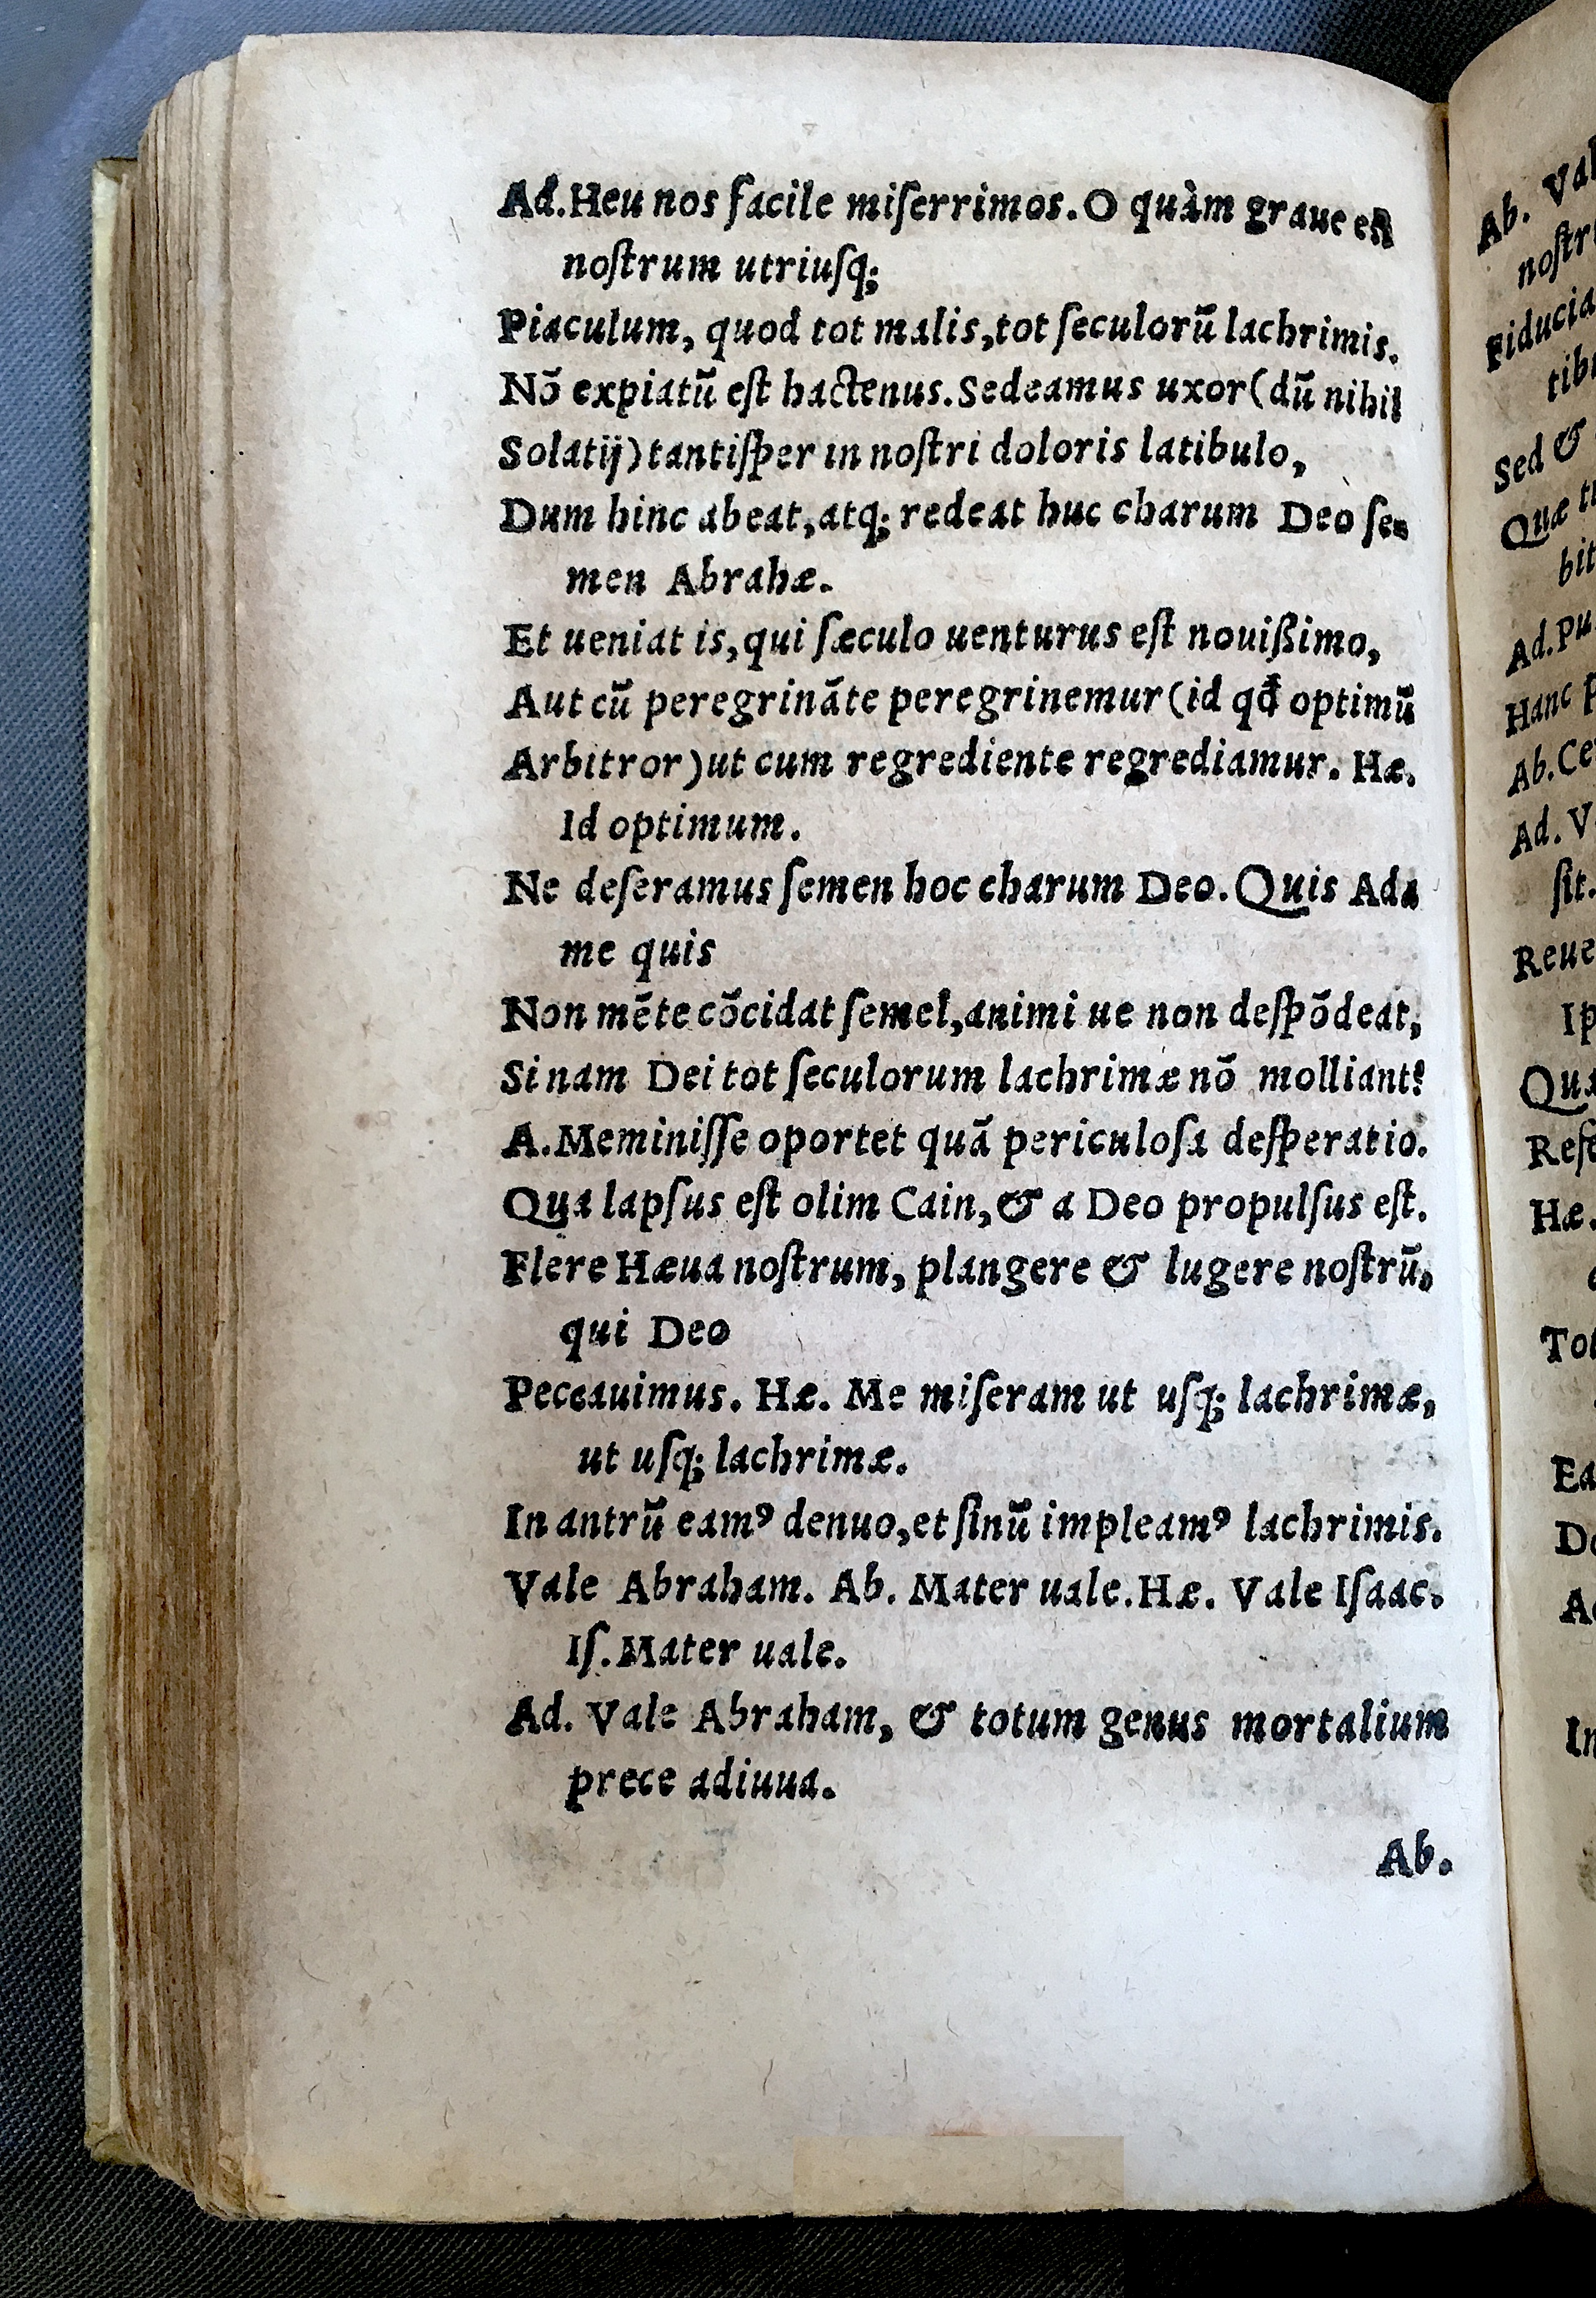 Ad. Heu nos facile miſerrimos. O quàm graue eſt
noſtrum utriuſq;
Piaculum, quod tot malis, tot ſeculorū lachrimis.
Nō expiatū eſt hactenus. Sedeamus uxor (dū nihil
Solatij) tantiſper in noſtri doloris latibulo,
Dum hinc abeat, atq; redeat huc charum Deo ſe-
men Abrahæ.
Et ueniat is, qui ſæculo uenturus eſt nouißimo,
Aut cū peregrināte peregrinemur (id qđ optimū
Arbitror) ut cum regrediente regrediamur. Hæ.
Id optimum.
Ne deſeramus ſemen hoc charum Deo. Quis Ada
me quis
Non mēte cōcidat ſemel, animi ue non deſpōdeat,
Si nam Dei tot ſeculorum lachrimæ nō molliant?
A. Meminiſſe oportet quā periculoſa deſperatio.
Qua lapſus eſt olim Cain, & a Deo propulſus eſt.
Flere Hæua noſtrum, plangere & lugere noſtrū,
qui Deo
Peccauimus. Hæ. Me miſeram ut uſq; lachrimæ,
ut uſq; lachrimæ.
In antrū eamꝰ denuo, et ſinū impleamꝰ lachrimis.
Vale Abraham. Ab. Mater uale. Hæ. Vale Iſaac.
Iſ. Mater uale.
Ad. Vale Abraham, & totum genus mortalium
prece adiuua.
Ab.
Ab.
Sed &
Ad.
Hanc
Ab.
Ad.
ſit.
Hæ.